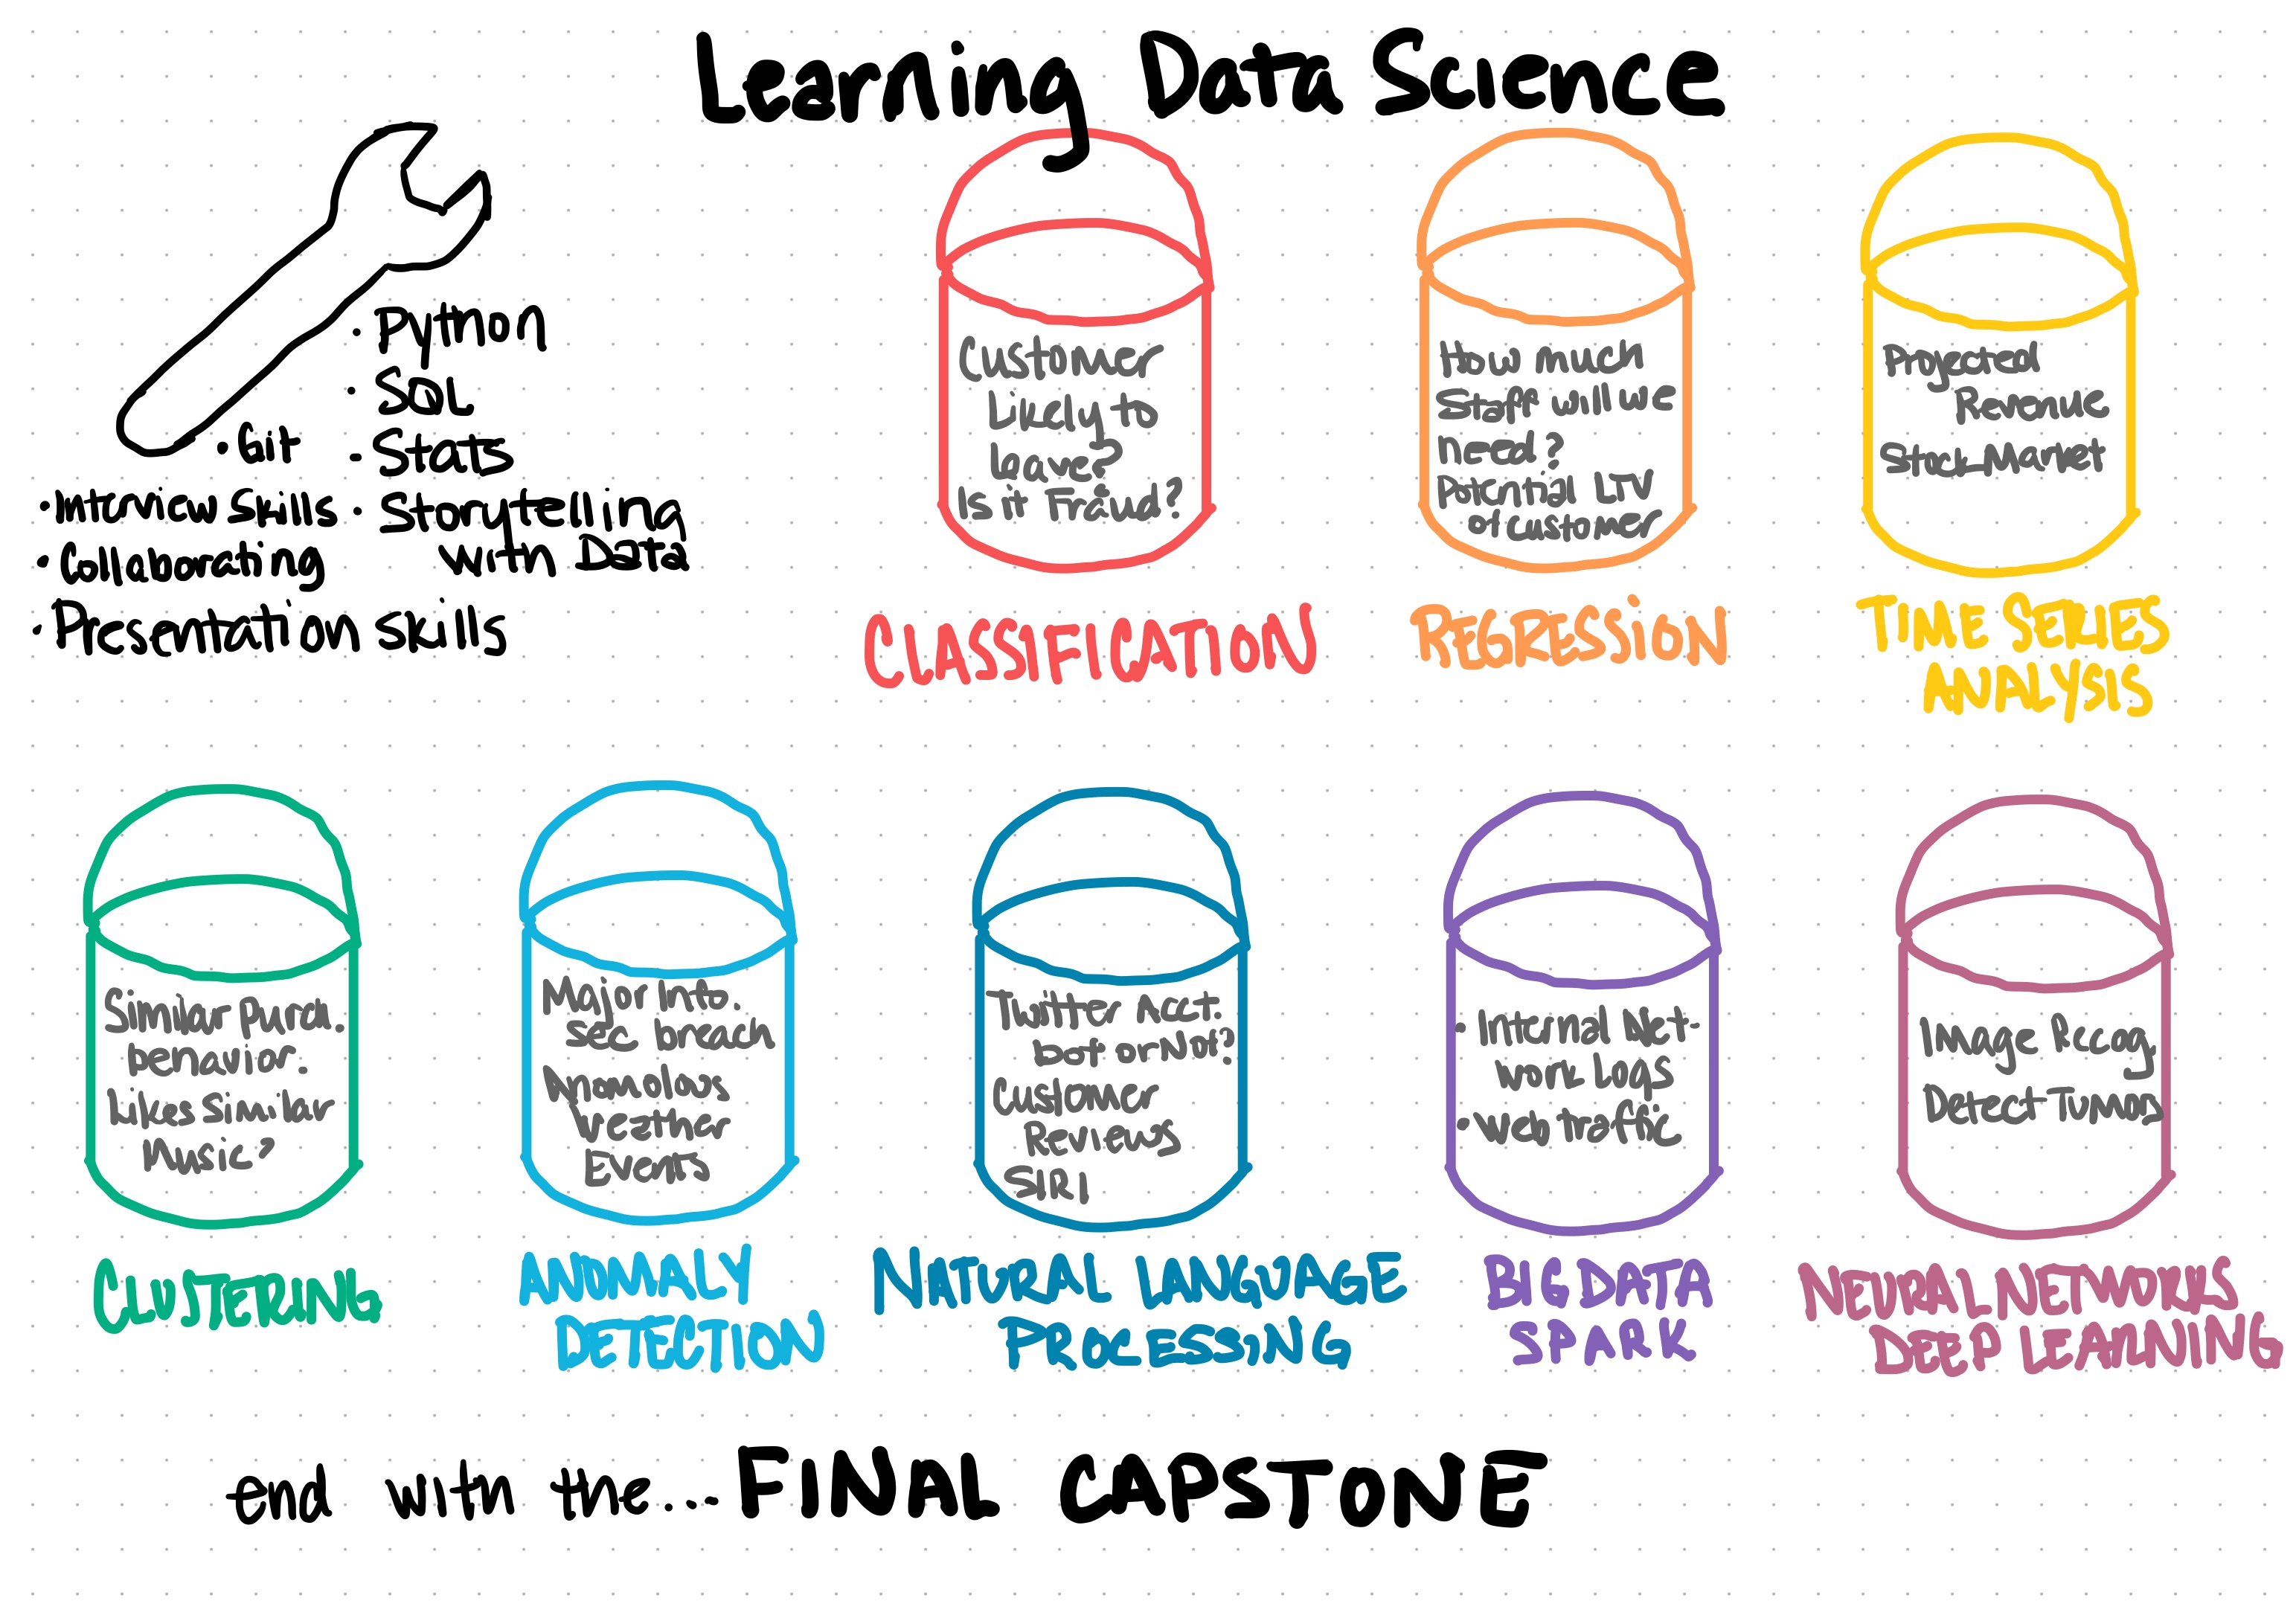 Learning Data Science
· Python
· SQL
· Git
· Stats
· Interview Skills
· Storytelling
with Data
· Collaborating
· Presentation Skills
Customer
Likely to
Leave?
Is it Fraud?
CLASSIFICATION
How much
Staff will we
need?
Potential LTV
of customer
REGRESSION
Projected
Revenue
Stock Market
TIME SERIES
ANALYSIS
Similar purch.
behavior.
Likes similar
Music?
CLUSTERING
Major Info.
sec breach
Anomolous
Weather
Events
ANOMALY
DETECTION
Twitter Acct.
bot or Not?
Customer
Reviews
SIRI
NATURAL LANGUAGE
PROCESSING
· Internal Net-
work Logs
· Web traffic
BIG DATA
SPARK
Image Recog.
Detect Tumors
NEURAL NETWORKS
DEEP LEARNING
end with the... FINAL CAPSTONE